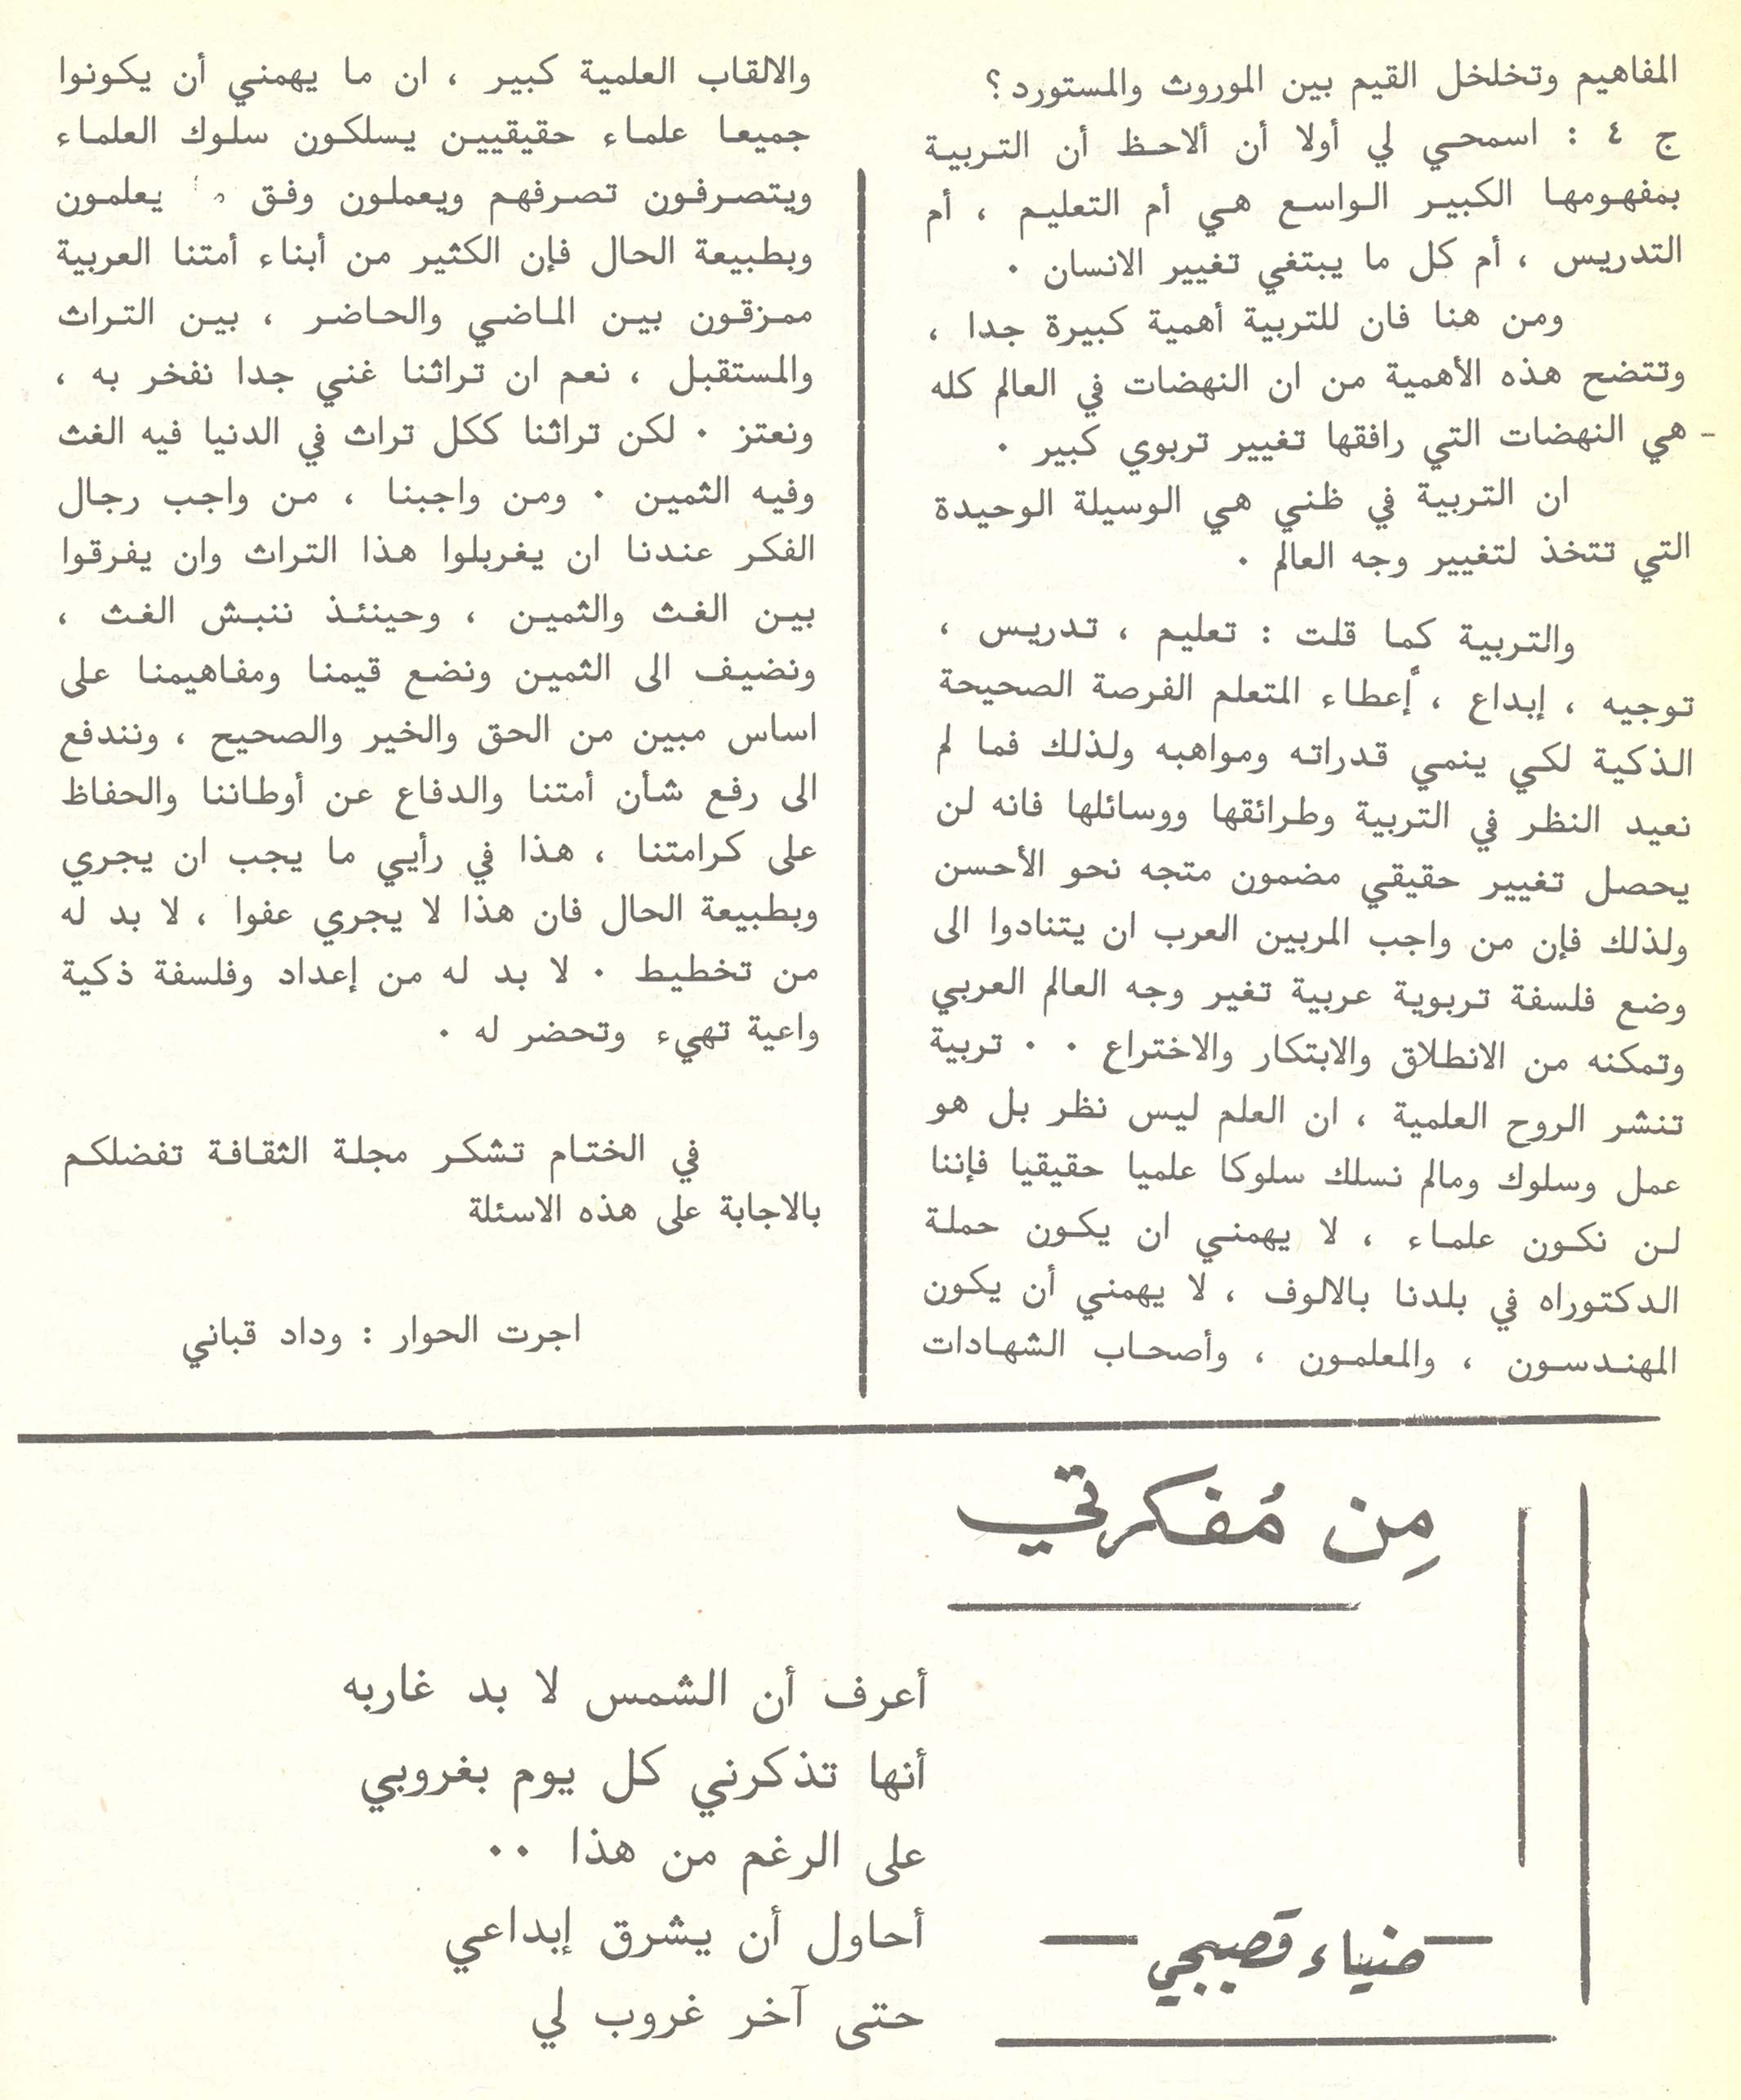 المفاهيم وتخلخل القيم بين الموروث والمستورد ؟
ج ٤ : اسمحي لي أولا أن ألاحظ أن التربية
بمفهومها الكبير الواسع هي أم التعليم ، أم
التدريس ، أم كل ما يبتغي تغيير الانسان ٠
ومن هنا فان للتربية أهمية كبيرة جدا ،
وتتضح هذه الأهمية من ان النهضات في العالم كله
هي النهضات التي رافقها تغيير تربوي كبير ٠
ان التربية في ظني هي الوسيلة الوحيدة
التي تتخذ لتغيير وجه العالم ٠
والتربية كما قلت : تعليم ، تدريس ،
توجيه ، إبداع ، إعطاء المتعلم الفرصة الصحيحة
الذكية لكي ينمي قدراته ومواهبه ولذلك فما لم
نعيد النظر في التربية وطرائقها ووسائلها فانه لن
يحصل تغيير حقيقي مضمون متجه نحو الأحسن
ولذلك فإن من واجب المربين العرب ان يتنادوا الى
وضع فلسفة تربوية عربية تغير وجه العالم العربي
وتمكنه من الانطلاق والابتكار والاختراع ٠ ٠ تربية
تنشر الروح العلمية ، ان العلم ليس نظر بل هو
عمل وسلوك ومالم نسلك سلوكا علميا حقيقيا فإننا
لن نكون علماء ، لا يهمني ان يكون حملة
الدكتوراه في بلدنا بالالوف ، لا يهمني أن يكون
المهندسون ، والمعلمون ، وأصحاب الشهادات
والالقاب العلمية كبير ، ان ما يهمني أن يكونوا
جميعا علماء حقيقيين يسلكون سلوك العلماء
ويتصرفون تصرفهم ويعملون وفق يعلمون
وبطبيعة الحال فإن الكثير من أبناء أمتنا العربية
ممزقون بين الماضي والحاضر ، بين التراث
والمستقبل ، نعم ان تراثنا غني جدا نفخر به ،
ونعتز ٠ لكن تراثنا ككل تراث في الدنيا فيه الغث
وفيه الثمين ٠ ومن واجبنا ، من واجب رجال
الفكر عندنا ان يغربلوا هذا التراث وان يفرقوا
بين الغث والثمين ، وحينئذ ننبش الغث ،
ونضيف الى الثمين ونضع قيمنا ومفاهيمنا على
اساس مبين من الحق والخير والصحيح ، ونندفع
الى رفع شأن أمتنا والدفاع عن أوطاننا والحفاظ
على كرامتنا ، هذا في رأيي ما يجب ان يجري
وبطبيعة الحال فان هذا لا يجري عفوا ، لا بد له
من تخطيط ٠ لا بد له من إعداد وفلسفة ذكية
واعية تهيء وتحضر له ٠
في الختام تشكر مجلة الثقافة تفضلكم
بالاجابة على هذه الاسئلة
اجرت الحوار : وداد قباني
مِن مُفكرتي
ضياء قصبجي
أعرف أن الشمس لا بد غاربه
أنها تذكرني كل يوم بغروبي
على الرغم من هذا ٠٠
أحاول أن يشرق إبداعي
حتى آخر غروب لي